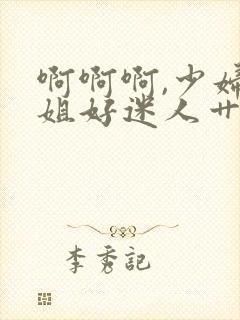 啊啊啊,少妇
姐好迷人艹
李秀記